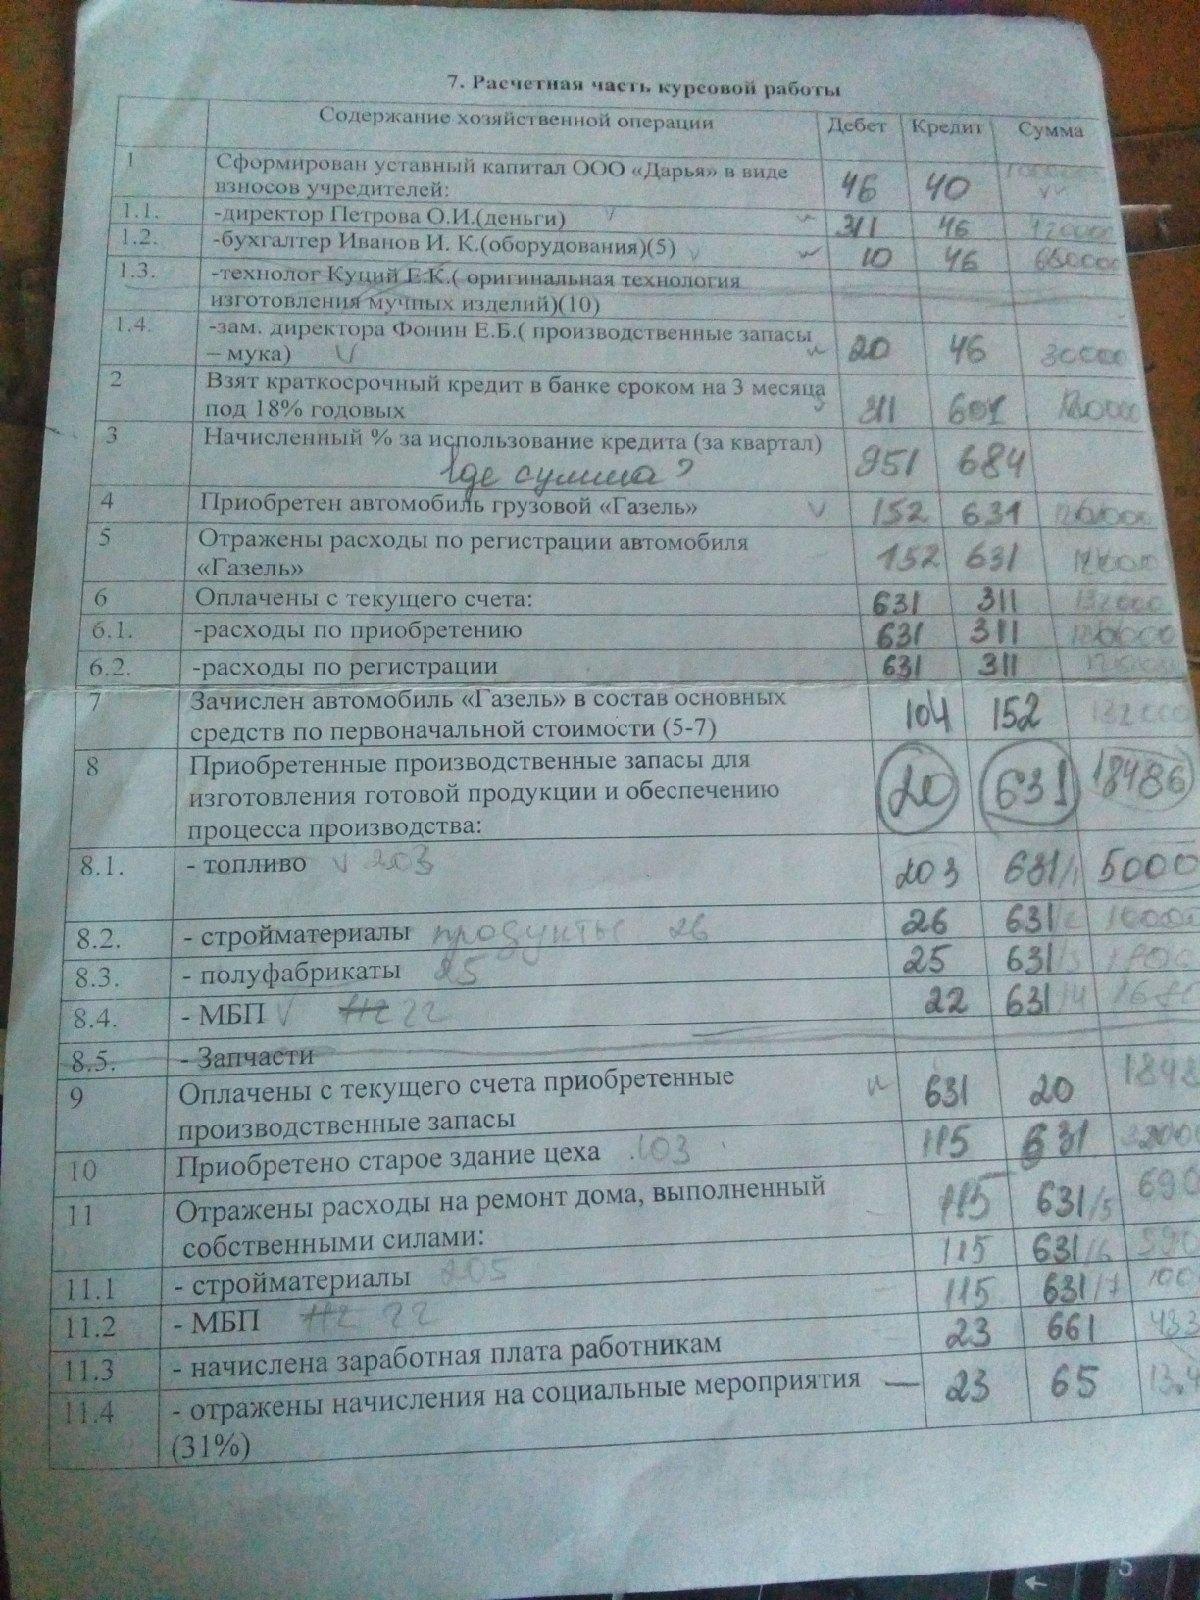 7. Расчетная часть курсовой работы
Содержание хозяйственной операции Дебет Кредит Сумма
1 Сформирован уставный капитал ООО «Дарья» в виде
взносов учредителей: 46 40
1.1. -директор Петрова О.И.(деньги) 311 46
1.2. -бухгалтер Иванов И. К.(оборудования)(5) 10 46
1.3. -технолог Куций Е.К.( оригинальная технология
изготовления мучных изделий)(10)
1.4. -зам. директора Фонин Е.Б.( производственные запасы
– мука) 20 46 30000
2 Взят краткосрочный кредит в банке сроком на 3 месяца
под 18% годовых 311 601
3 Начисленный % за использование кредита (за квартал) 951 684
Где сумма?
4 Приобретен автомобиль грузовой «Газель» 152 631 120000
5 Отражены расходы по регистрации автомобиля
«Газель» 152 631 12000
6 Оплачены с текущего счета: 631 311 132000
6.1. -расходы по приобретению 631 311 120000
6.2. -расходы по регистрации 631 311
7 Зачислен автомобиль «Газель» в состав основных
средств по первоначальной стоимости (5-7) 104 152 132000
8 Приобретенные производственные запасы для
изготовления готовой продукции и обеспечению
процесса производства: 20 631 18486
8.1. - топливо 203 203 631/1 5000
8.2. - стройматериалы продукты 26 26 631/2
8.3. - полуфабрикаты 25 25 631/3
8.4. - МБП 22 22 631/4
8.5. - Запчасти
9 Оплачены с текущего счета приобретенные
производственные запасы 631 20
10 Приобретено старое здание цеха 103 115 631
11 Отражены расходы на ремонт дома, выполненный
собственными силами: 115 631/5
11.1 - стройматериалы 205 115 631/6
11.2 - МБП 22 115 631/7
11.3 - начислена заработная плата работникам 23 661
11.4 - отражены начисления на социальные мероприятия
(31%) 23 65
5